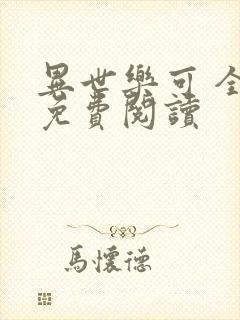 異世樂可全
免費閱讀
馬懷德